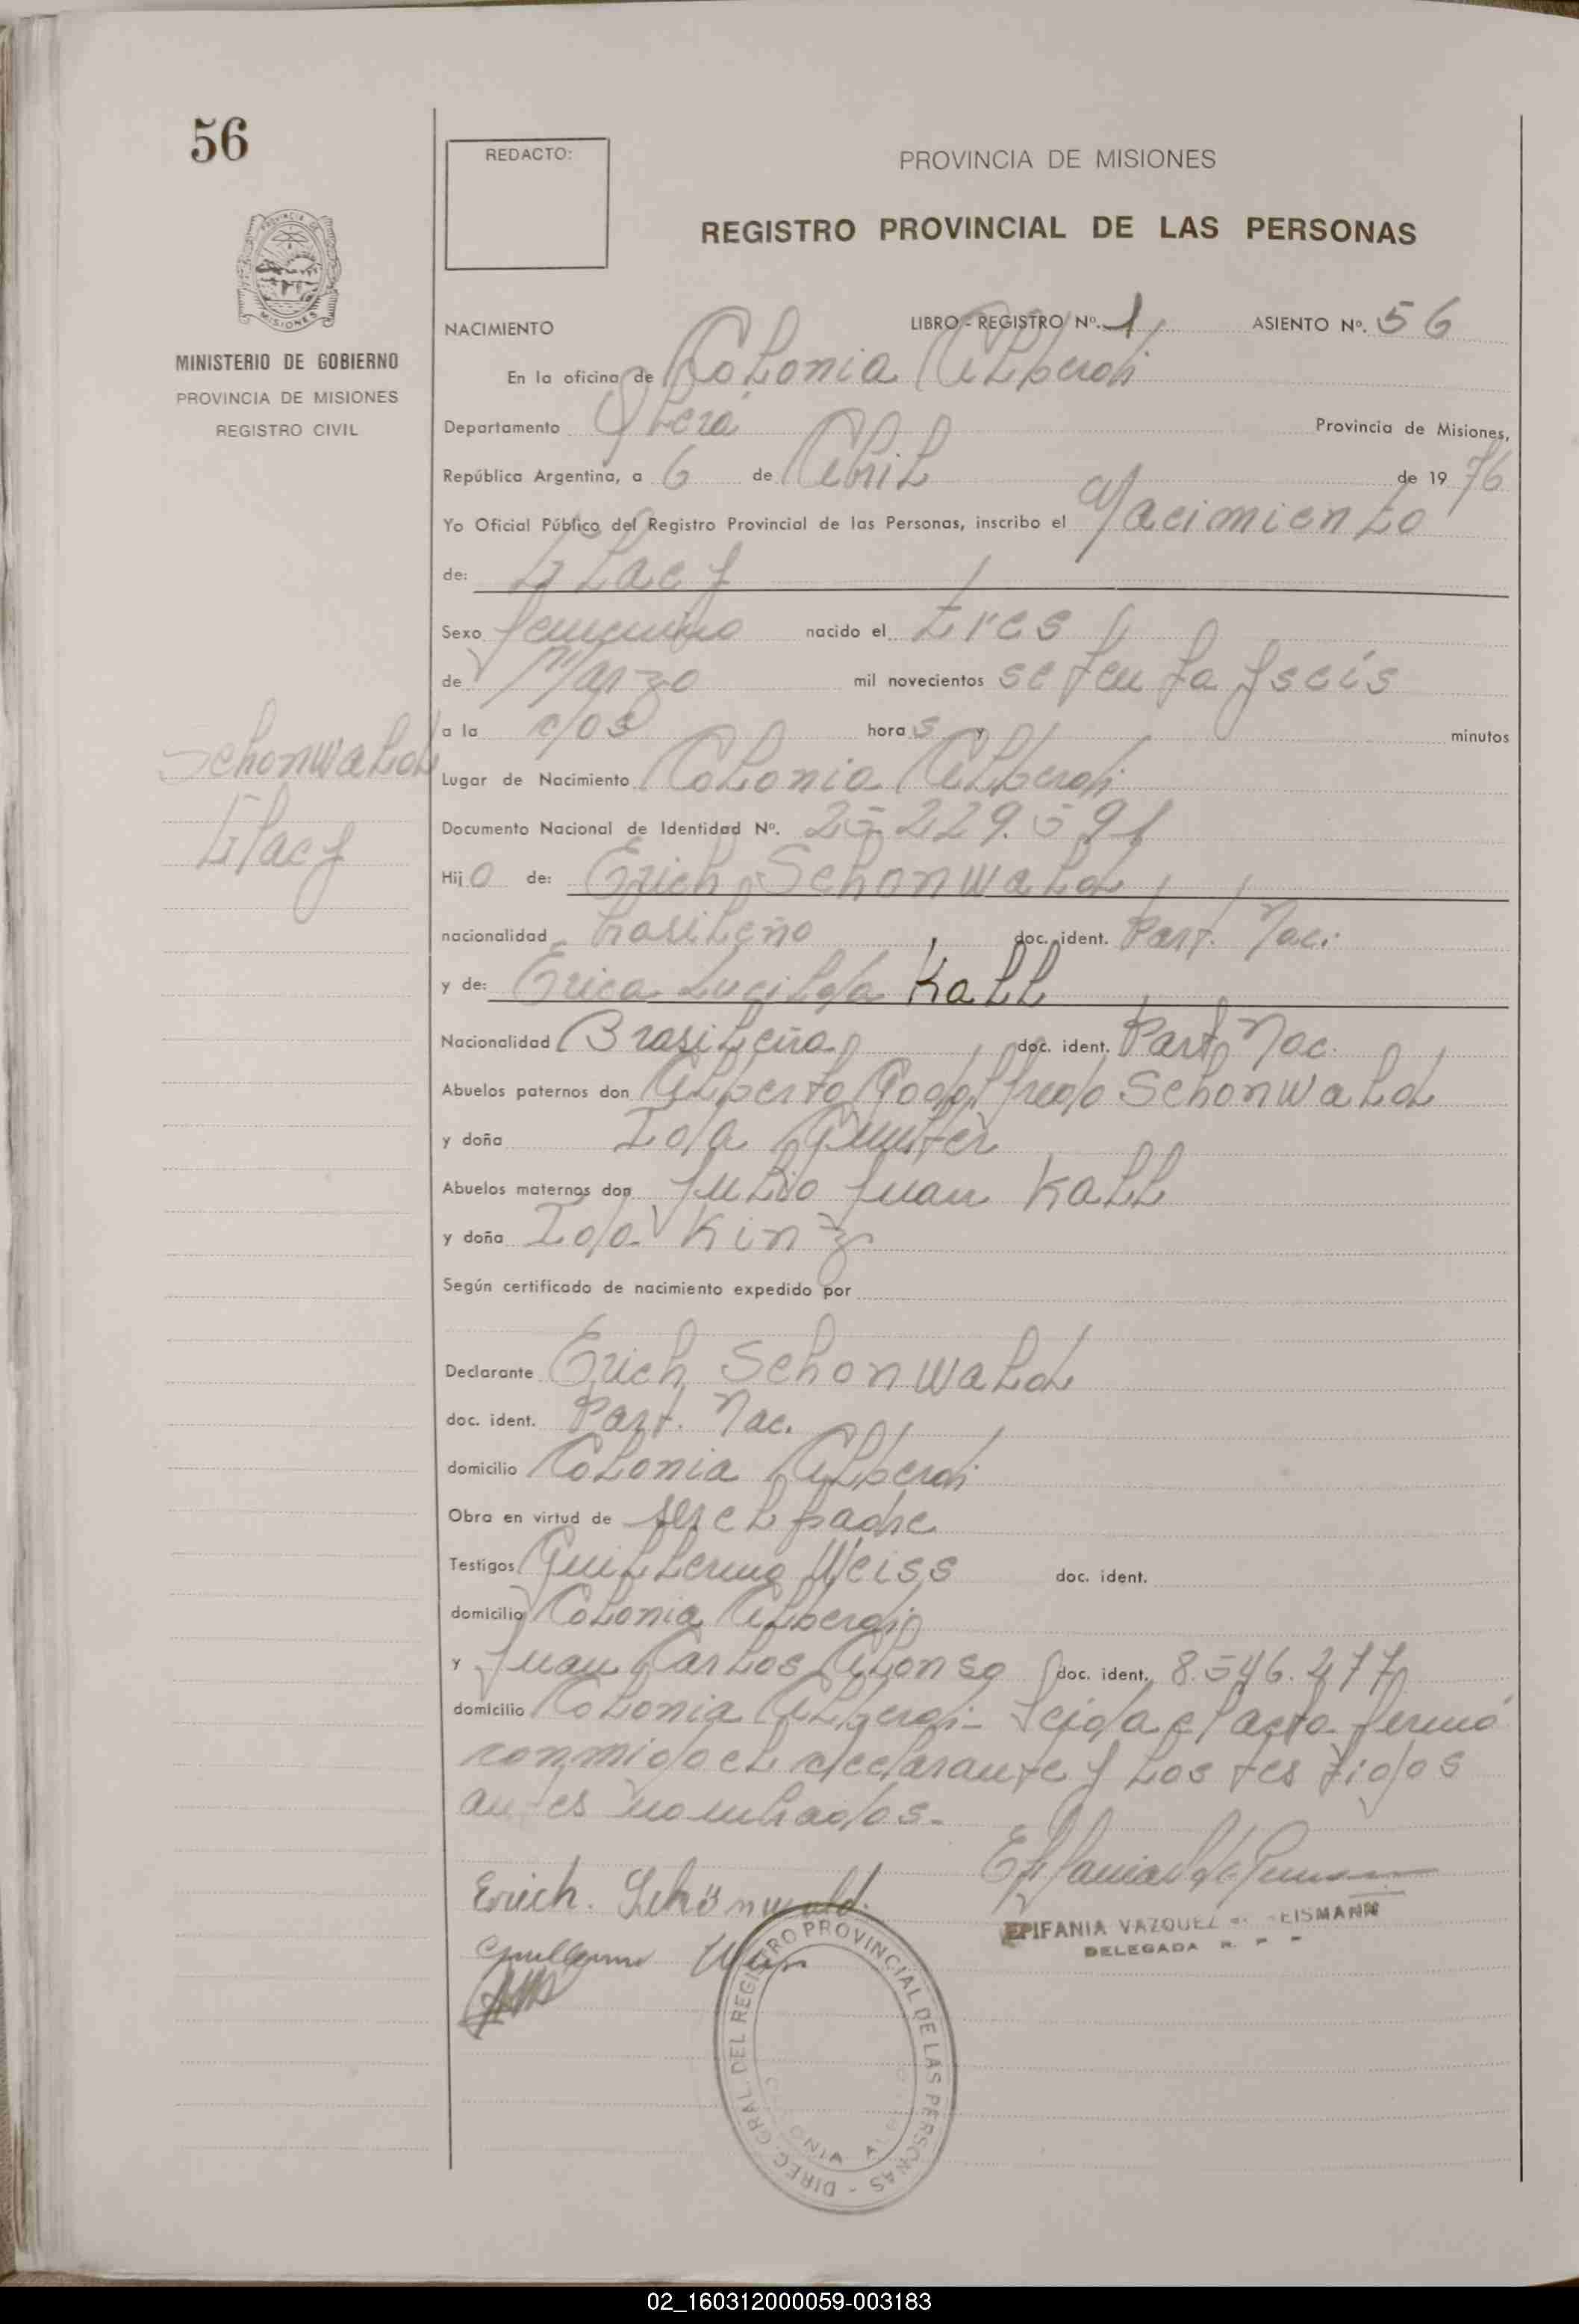 56
REDACTO:
PROVINCIA DE MISIONES
REGISTRO PROVINCIAL DE LAS PERSONAS
MISIONES
MINISTERIO DE GOBIERNO
PROVINCIA DE MISIONES
REGISTRO CIVIL
NACIMIENTO LIBRO - REGISTRO Nº. 1 ASIENTO Nº. 56
En la oficina de Colonia Alberdi
Departamento Oberá Provincia de Misiones,
República Argentina, a 6 de Abril de 1976
Yo Oficial Público del Registro Provincial de las Personas, inscribo el Nacimiento
de:
Sexo femenino nacido el tres
de Marzo mil novecientos setenta y seis
a la dos horas y minutos
Schonwald
Lugar de Nacimiento Colonia Alberdi
Documento Nacional de Identidad Nº. 25.229.591
Hijo de: Erich Schonwald
nacionalidad brasileño doc. ident. Part. Nac.
y de: Erica Lucilda Kall
Nacionalidad Brasileña doc. ident. Part Nac.
Abuelos paternos don Alberto Godolfredo Schonwald
y doña Ida Gunter
Abuelos maternos don Julio Juan Kall
y doña Ida Kinz
Según certificado de nacimiento expedido por
Declarante Erich Schonwald
doc. ident. Part. Nac.
domicilio Colonia Alberdi
Obra en virtud de ser el padre
Testigos Guillermo Weiss doc. ident.
domicilio Colonia Alberdi
y Juan Carlos Alonso doc. ident. 8.546.277
domicilio Colonia Alberdi - Leida el acta firmó
conmigo el declarante y los testigos
antes nombrados.-
Erich. Schönwald.
EPIFANIA VAZQUEZ EISMANN
DELEGADA R. P
Guillermo Weiss
DIREC. GRAL. DEL REGISTRO PROVINCIAL DE LAS PERSONAS -
02_160312000059-003183